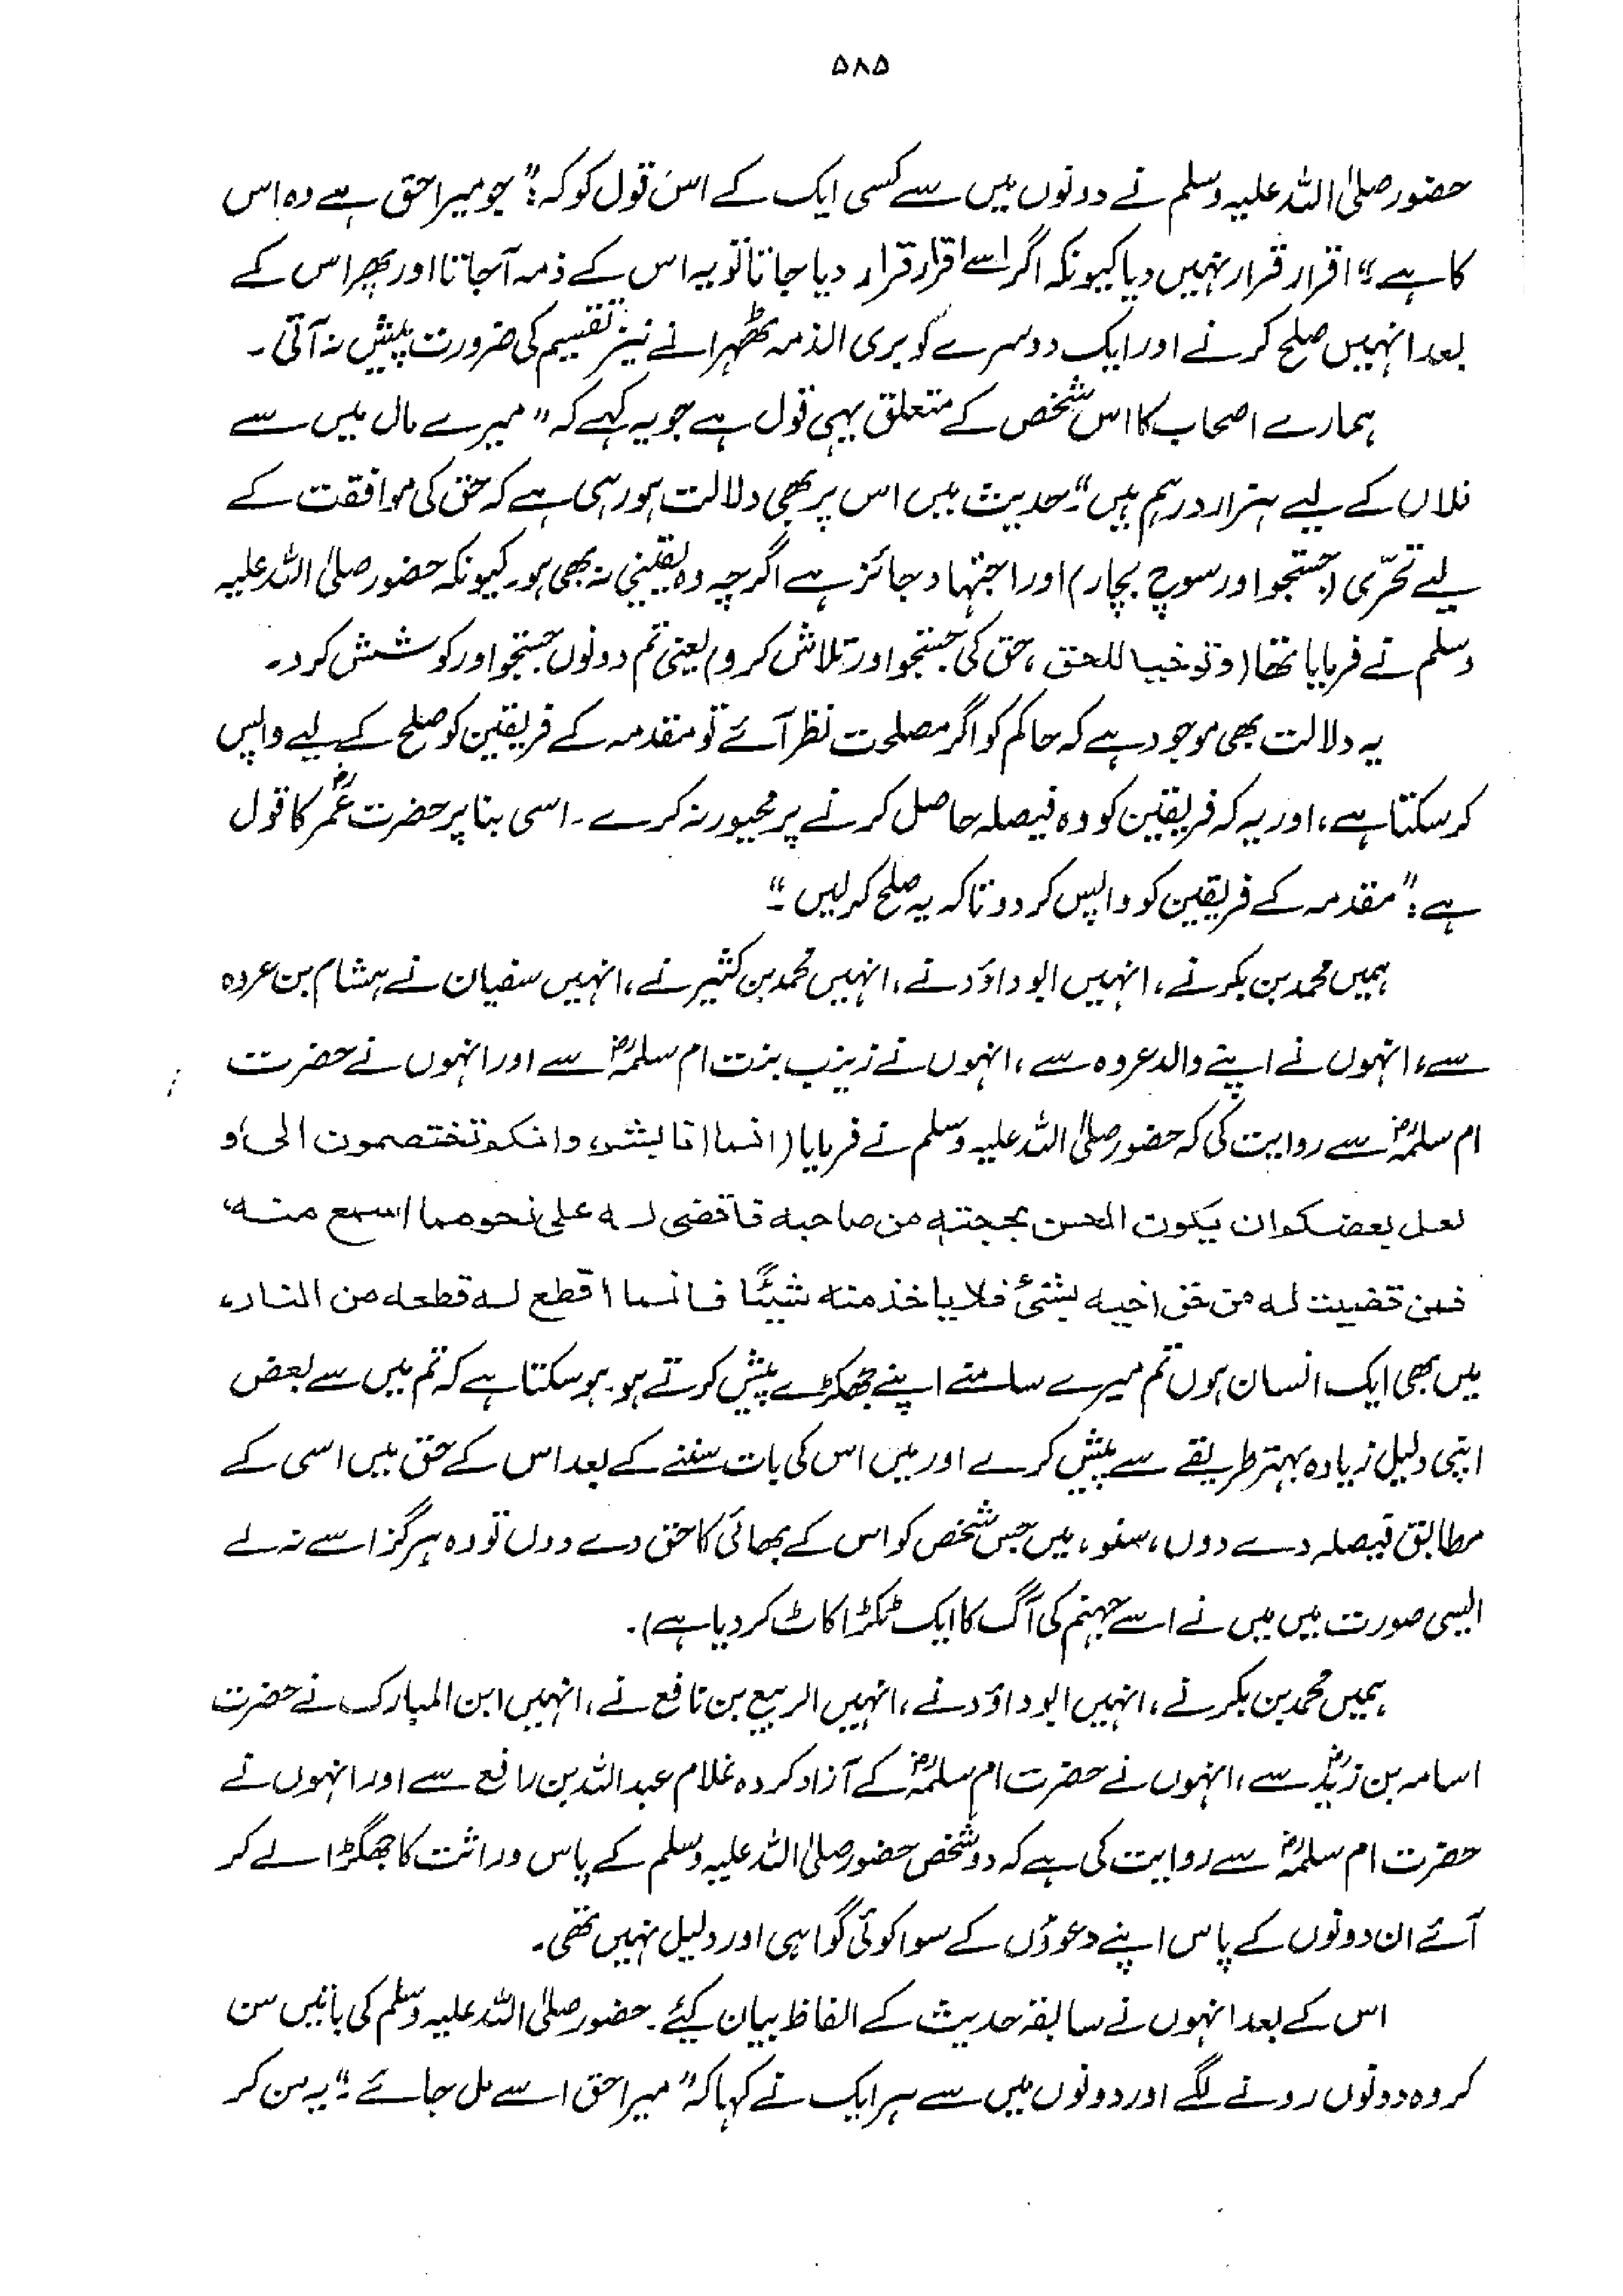 ۵۸۵
حضور صلی اللہ علیہ وسلم نے دونوں میں سے کسی ایک کے اس قول کو کہ: "جو میرا حق ہے وہ اس
کا ہے" اقرار قرار نہیں دیا کیونکہ اگر اسے اقرار قرار دیا جاتا تو یہ اس کے ذمہ آجاتا اور پھر اس کے
بعد انہیں صلح کرنے اور ایک دوسرے کو بری الذمہ ٹھہرانے نیز تقسیم کی ضرورت پیش نہ آتی۔
ہمارے اصحاب کا اس شخص کے متعلق یہی قول ہے جو یہ کہے کہ "میرے مال میں سے
فلاں کے لیے ہزار درہم ہیں"۔ حدیث میں اس پر بھی دلالت ہو رہی ہے کہ حق کی موافقت کے
لیے تحرّی (جستجو اور سوچ بچار) اور اجتہاد جائز ہے اگرچہ وہ یقینی نہ بھی ہو۔ کیونکہ حضور صلی اللہ علیہ
وسلم نے فرمایا تھا (وتوخیا للحق، حق کی جستجو اور تلاش کرو) یعنی تم دونوں جستجو اور کوشش کرو۔
یہ دلالت بھی موجود ہے کہ حاکم کو اگر مصلحت نظر آئے تو مقدمہ کے فریقین کو صلح کے لیے واپس
کر سکتا ہے، اور یہ کہ فریقین کو وہ فیصلہ حاصل کرنے پر مجبور نہ کرے۔ اسی بنا پر حضرت عمرؓ کا قول
ہے: "مقدمہ کے فریقین کو واپس کر دو تاکہ یہ صلح کر لیں۔"
ہمیں محمد بن بکر نے، انہیں ابو داؤد نے، انہیں محمد بن کثیر نے، انہیں سفیان نے ہشام بن عروہ
سے، انہوں نے اپنے والد عروہ سے، انہوں نے زینب بنت ام سلمہؓ سے اور انہوں نے حضرت
ام سلمہؓ سے روایت کی کہ حضور صلی اللہ علیہ وسلم نے فرمایا (انما انا بشر، وانکم تختصمون الی، و
لعل بعضکم ان یکون الحن بحجتہ من صاحبہ فاقضی لہ علی نحو مما اسمع منہ،
فمن قضیت لہ من حق اخیہ بشئ فلا یاخذ منہ شیئًا فانما اقطع لہ قطعہ من النار،
میں بھی ایک انسان ہوں تم میرے سامنے اپنے جھگڑے پیش کرتے ہو۔ ہو سکتا ہے کہ تم میں سے بعض
اپنی دلیل زیادہ بہتر طریقے سے پیش کرے اور میں اس کی بات سننے کے بعد اس کے حق میں اسی کے
مطابق فیصلہ دے دوں، سنو، میں جس شخص کو اس کے بھائی کا حق دے دوں تو وہ ہرگز اسے نہ لے
ایسی صورت میں میں نے اسے جہنم کی آگ کا ایک ٹکڑا کاٹ کر دیا ہے)۔
ہمیں محمد بن بکر نے، انہیں ابو داؤد نے، انہیں الربیع بن نافع نے، انہیں ابن المبارک نے حضرت
اسامہ بن زیدؓ سے، انہوں نے حضرت ام سلمہؓ کے آزاد کردہ غلام عبداللہ بن رافع سے اور انہوں نے
حضرت ام سلمہؓ سے روایت کی ہے کہ دو شخص حضور صلی اللہ علیہ وسلم کے پاس وراثت کا جھگڑا لے کر
آئے ان دونوں کے پاس اپنے دعوؤں کے سوا کوئی گواہی اور دلیل نہیں تھی۔
اس کے بعد انہوں نے سابقہ حدیث کے الفاظ بیان کیئے۔ حضور صلی اللہ علیہ وسلم کی باتیں سن
کر وہ دونوں رونے لگے اور دونوں میں سے ہر ایک نے کہا کہ "میرا حق اسے مل جائے۔" یہ سن کر